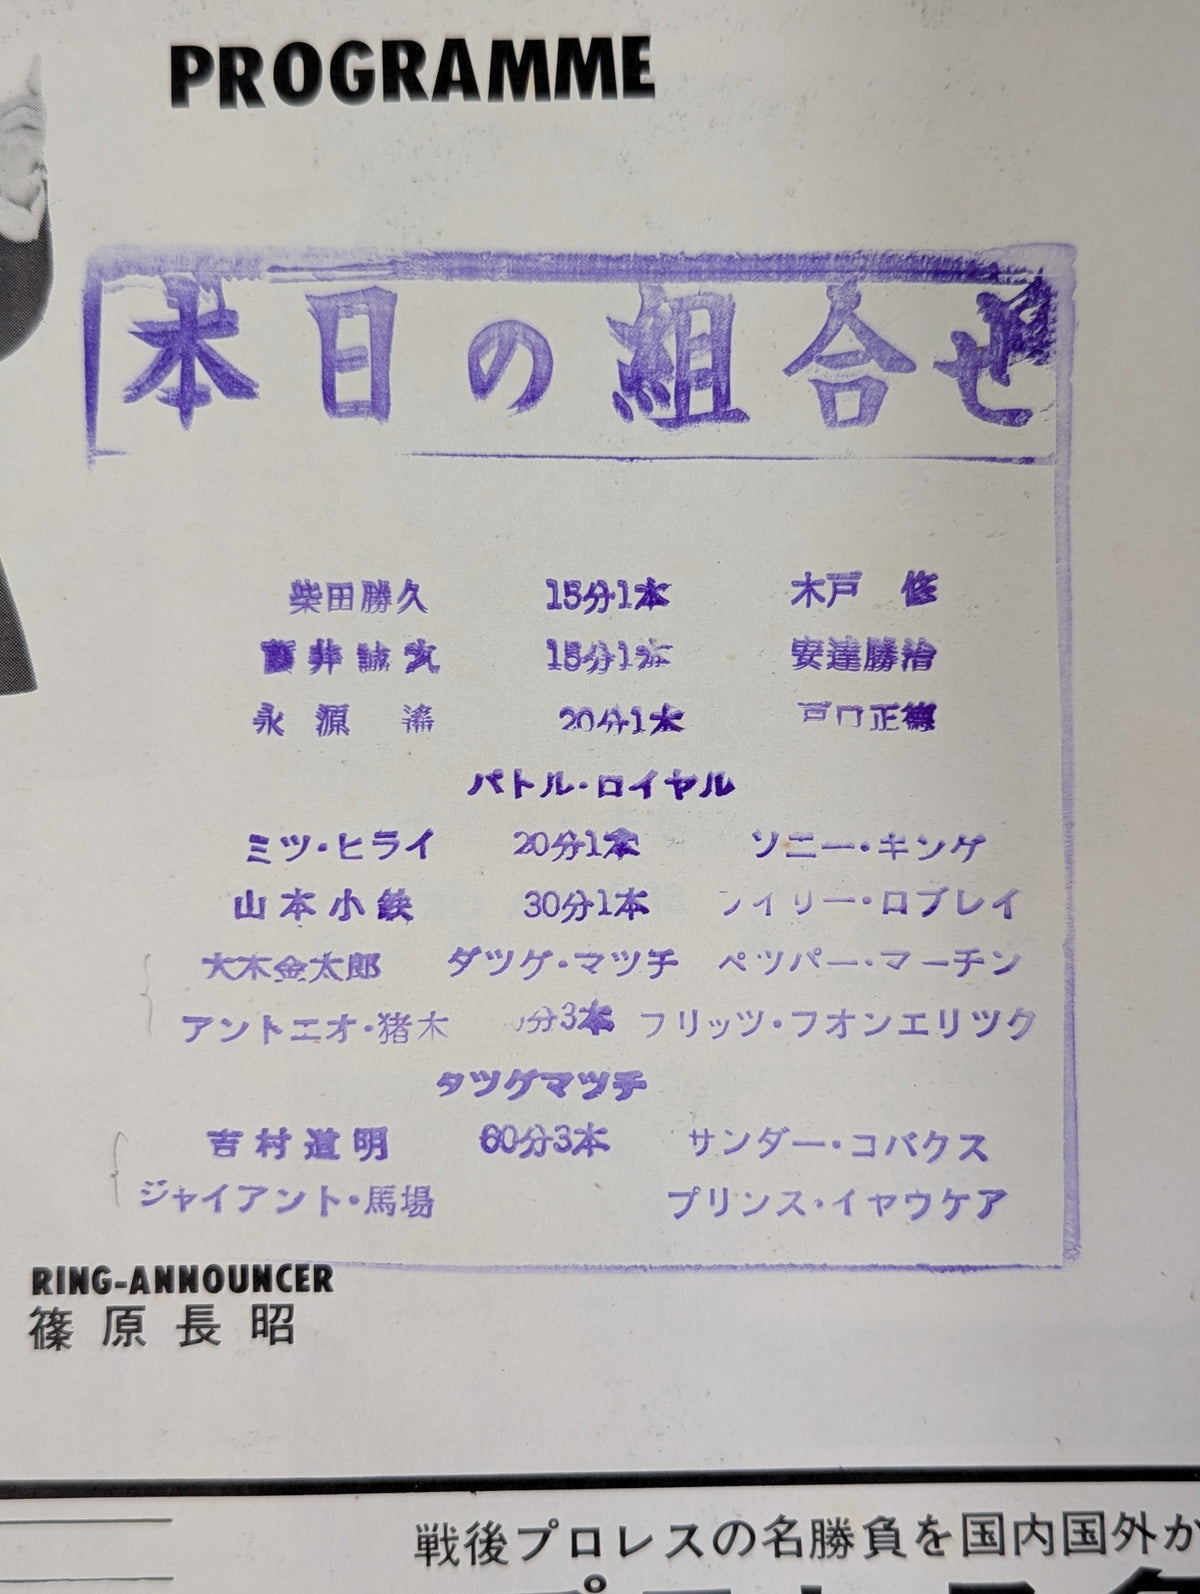 PROGRAMME
本日の組合せ
柴田勝久 15分1本 木戸 修
藤井誠之 15分1本 安達勝治
永源 遙 20分1本 戸口正徳
バトル・ロイヤル
ミツ・ヒライ 20分1本 ソニー・キング
山本小鉄 30分1本 フイリー・ロブレイ
大木金太郎 タツグ・マツチ ペツパー・マーチン
アントニオ・猪木 分3本 フリッツ・フオンエリツク
タツグマツチ
吉村道明 60分3本 サンダー・コバクス
ジャイアント・馬場 プリンス・イヤウケア
RING-ANNOUNCER
篠原長昭
戦後プロレスの名勝負を国内国外か